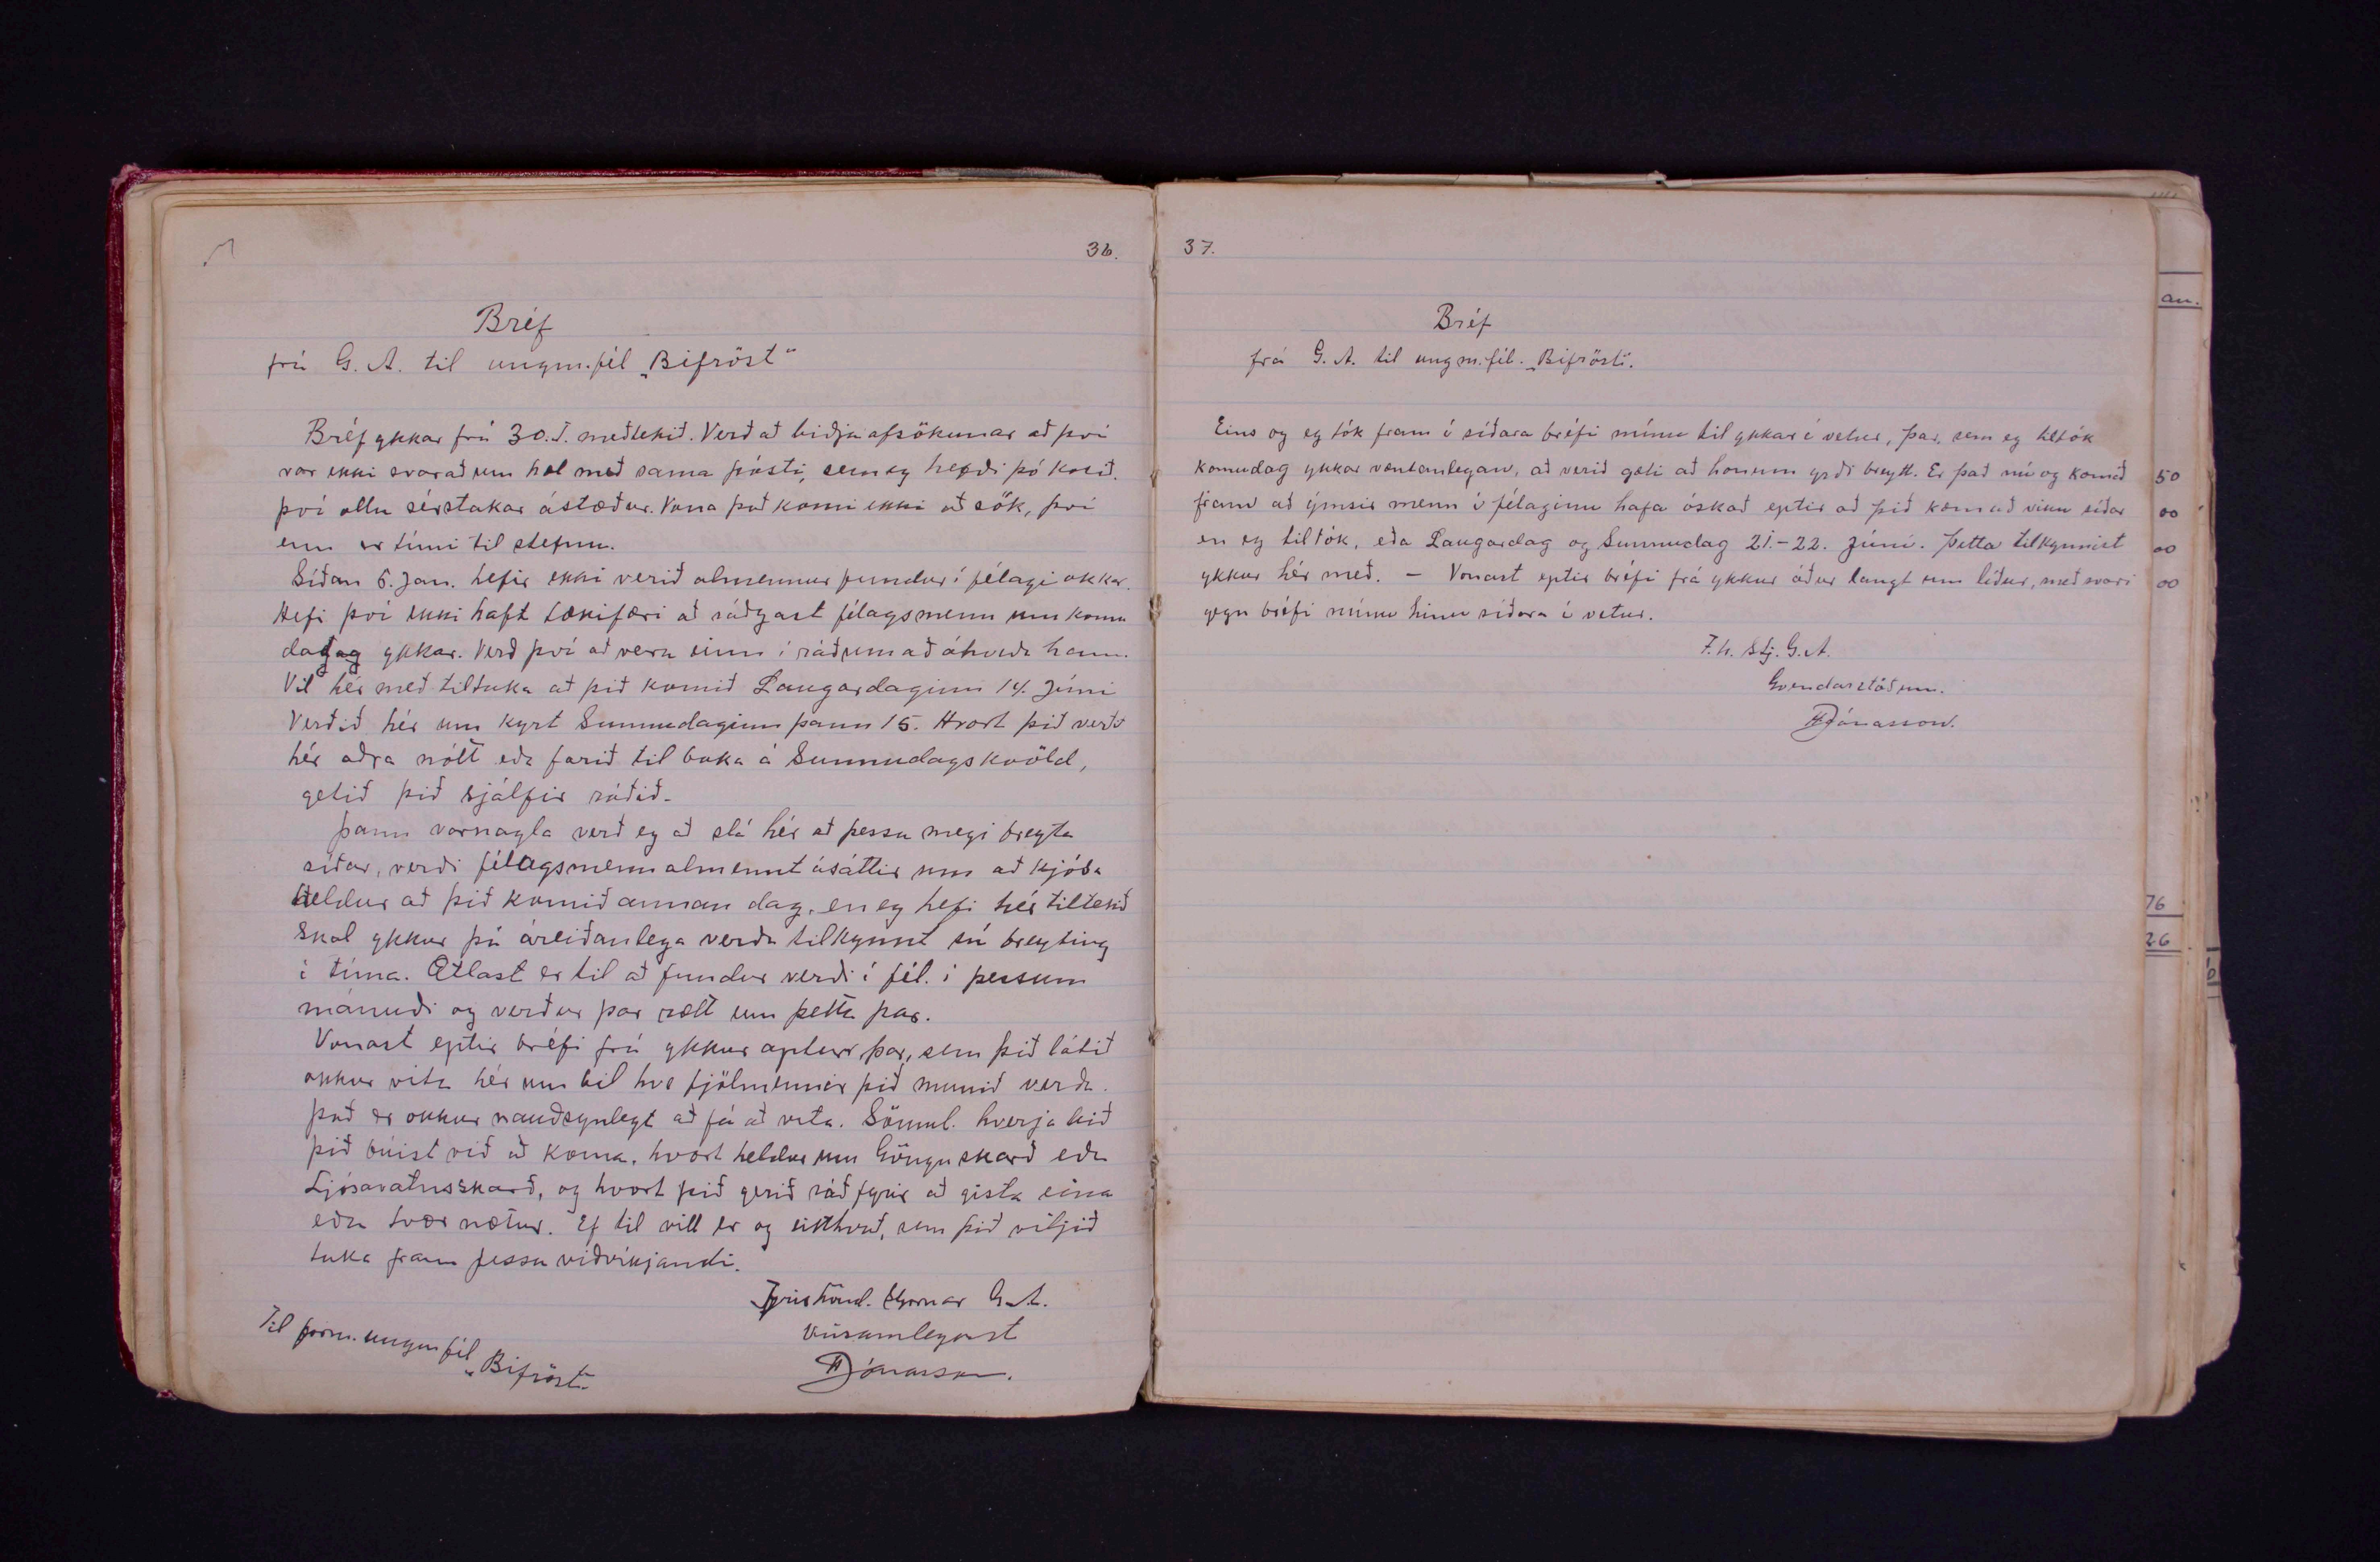 36.
Bréf
frá G. A. til ungm.fél „Bifröst“
Bréf ykkar frá 30. I. meðtekið. Verð að biðja afsökunar að því
var ekki svarað um hæl með sama pósti, sem eg hefði þó kosið.
því ollu sérstakar ástæður. Vona það komi ekki að sök, því
enn er tími til stefnu.
Síðan 6. Jan. hefir ekki verið almennur fundur í félagi okkar.
Hefi því ekki haft tækifæri að ráðgast félagsmenn um komu
dag ykkar. Verð því að vera einn í ráðum að ákveða hann.
Vil hér með tiltaka að þið komið Laugardaginn 14. Júni
Verðið hér um kyrt Sunnudaginn þann 15. Hvort þið verð
hér aðra nótt eða farið til baka á Sunnudagskvöld,
getið þið sjálfir ráðið.
Þann varnagla verð eg að slá hér að þessu megi breyta
síðar, verði félagsmenn almennt ásáttir um að kjósa
heldur að þið komið annan dag, en eg hefi hér tiltekið
Skal ykkur þá áreiðanlega verða tilkynnt sú breyting
í tíma. Ætlast er til að fundur verði í fél. í þessum
mánuði og verður þar rætt um þetta þar.
Vonast eptir bréfi frá ykkur aptur þar, sem þið látið
okkur vita hér um bil hve fjölmennir þið munið verða.
það er okkur nauðsynlegt að fá að vita. Sömul. hverja leið
þið búist við að koma, hvort heldur um Gönguskarð eða
Ljósavatnsskarð, og hvort þið gerið ráð fyrir að gista eina
eða tvær nætur. Ef til vill er og eitthvað, sem þið viljið
taka fram þessu viðvíkjandi.
Fyrir hönd. stjórnar G. A.
Vinsamlegast
Jónasson.
Til form. ungm fél
„Bifröst“
37.
Bréf
frá G. A. til ungm.fél. „Bifröst“.
Eins og eg tók fram í síðara bréfi mínu til ykkar í vetur, þar, sem eg tiltók
komudag ykkar væntanlegan, að verið gæti að honum yrði breytt. Er það nú og komið
fram að ýmsir menn í félaginu hafa óskað eptir að þið kæmuð viku síðar
en eg tiltók, eða Laugardag og Sunnudag 21.-22. Júní. Þetta tilkynnist
ykkur hér með. – Vonast eptir bréfi frá ykkur áður langt um líður, með svari
gegn bréfi mínu hinu síðara í vetur.
F. h. stj. G. A.
Gvendarstöðum.
Jónasson.
an.
50
00
00
00
76
26